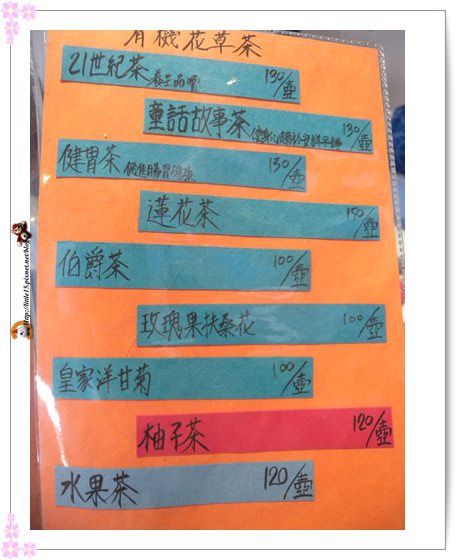 有機花草茶
21世紀茶 養生品嚐 130/壺
童話故事茶 使身心趨於安詳平靜 130/壺
健胃茶 促進腸胃健康 130/壺
蓮花茶 150/壺
伯爵茶 100/壺
玫瑰果扶桑花 100/壺
皇家洋甘菊 100/壺
柚子茶 120/壺
水果茶 120/壺